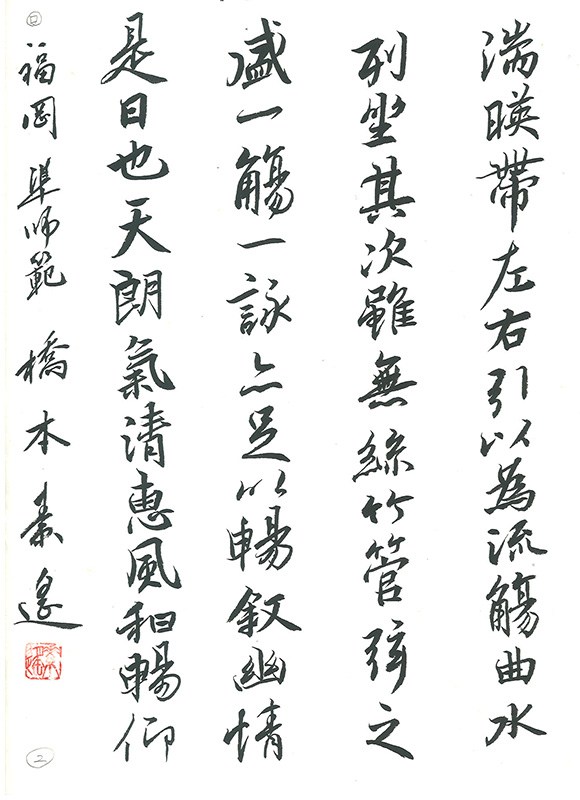 湍暎帶左右引以為流觴曲水
列坐其次雖無絲竹管弦之
盛一觴一詠亦足以暢叙幽情
是日也天朗氣清惠風和暢仰
福岡 準師範 橋本
2